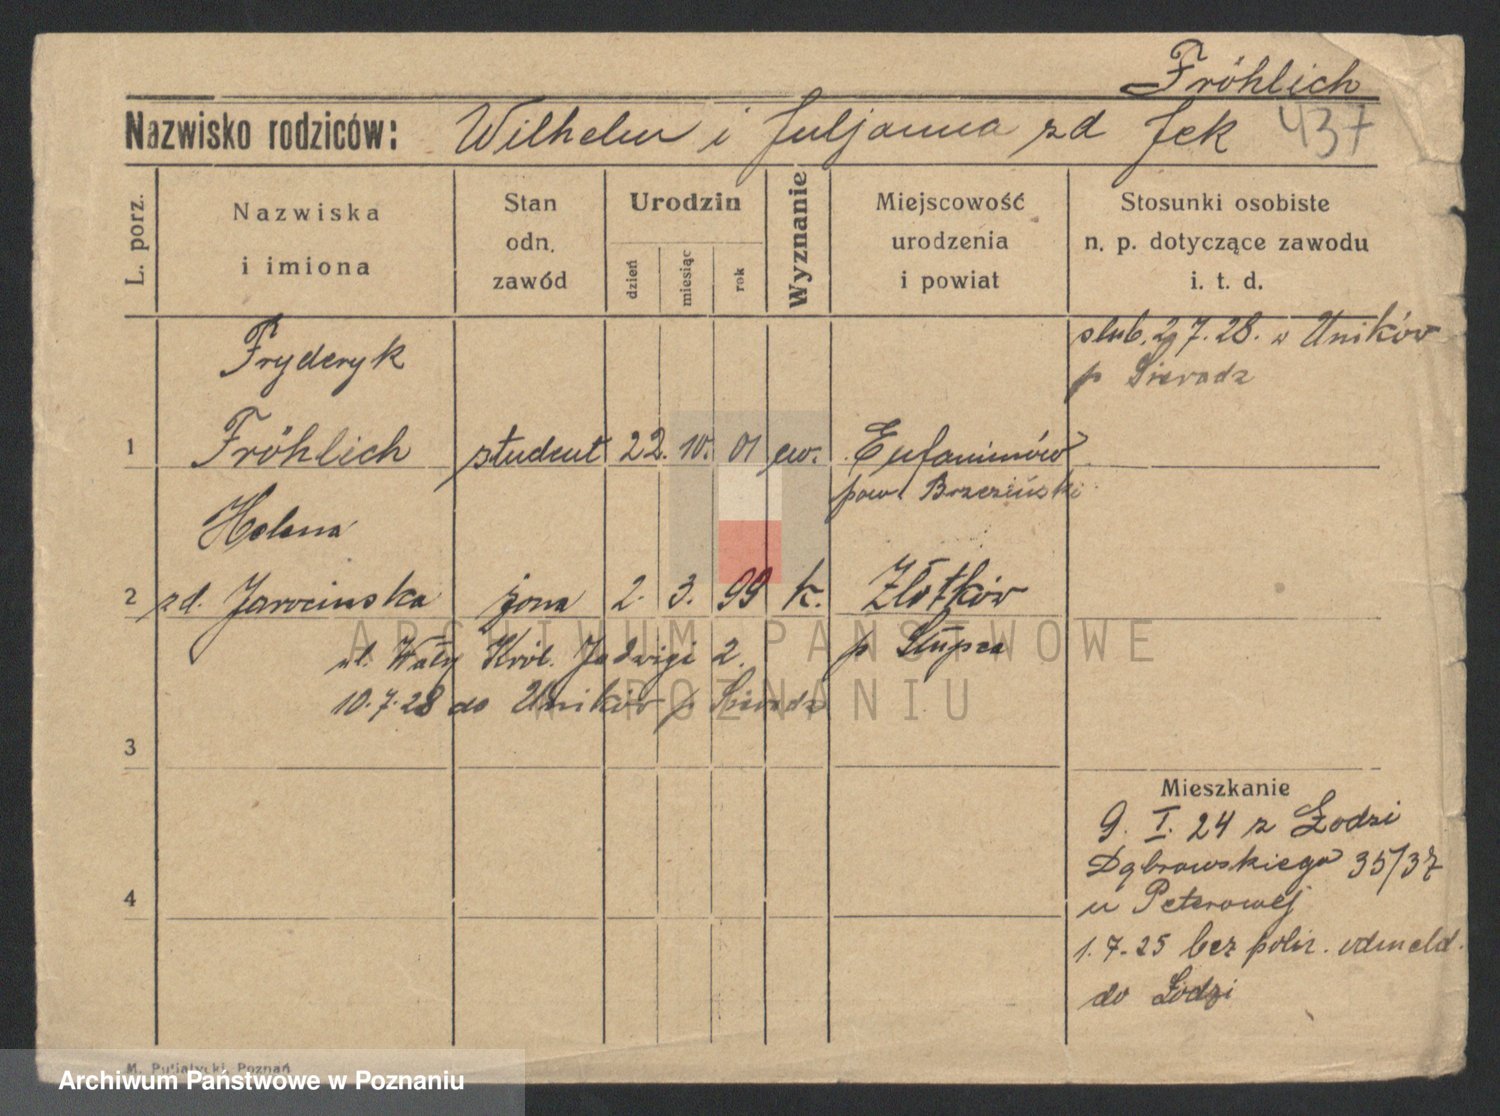 Fröhlich
Nazwisko rodziców: Wilhelm i Juljanna zd Jek 437
L. porz.
Nazwiska i imiona
Stan odn. zawód
Urodzin
dzień
miesiąc
rok
Wyznanie
Miejscowość urodzenia i powiat
Stosunki osobiste n. p. dotyczące zawodu i. t. d.
ślub. 2 7. 28. w Uników
p Sieradz
Fryderyk
1 Fröhlich student 22. 10. 01 ew. Eufaminów
pow Brzeziński
Helena
2 zd. Jarocinska żona 2. 3. 99 k. Złotków
ul. Wały Król. Jadwigi 2. p Słupca
10.7.28 do Uników p Sieradz
ARCHIWUM PAŃSTWOWE
W POZNANIU
3
Mieszkanie
9. I. 24 z Łodzi
Dąbrowskiego 35/37
u Peterowej
4
1.7.25 bez polic. odmeld.
do Łodzi
M. Putiatycki, Poznań
Archiwum Państwowe w Poznaniu